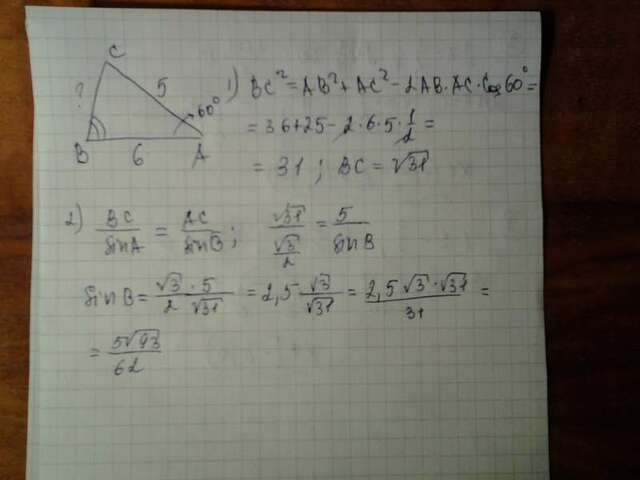 C
? 5
60°
B 6 A
1) BC² = AB² + AC² - 2AB·AC·Cos 60° =
= 36 + 25 - 2·6·5·1/2 =
= 31 ; BC = √31
2) BC/sin A = AC/sin B ; √31/(√3/2) = 5/sin B
sin B = √3·5/2√31 = 2,5 √3/√31 = 2,5√3·√31/31 =
= 5√93/62